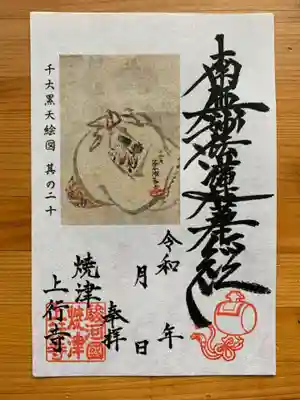 南無妙法蓮華経
令和 年
月 日
奉拝
焼津
上行寺
千大黒天絵図 其の二十
駿河國
焼津
上行寺